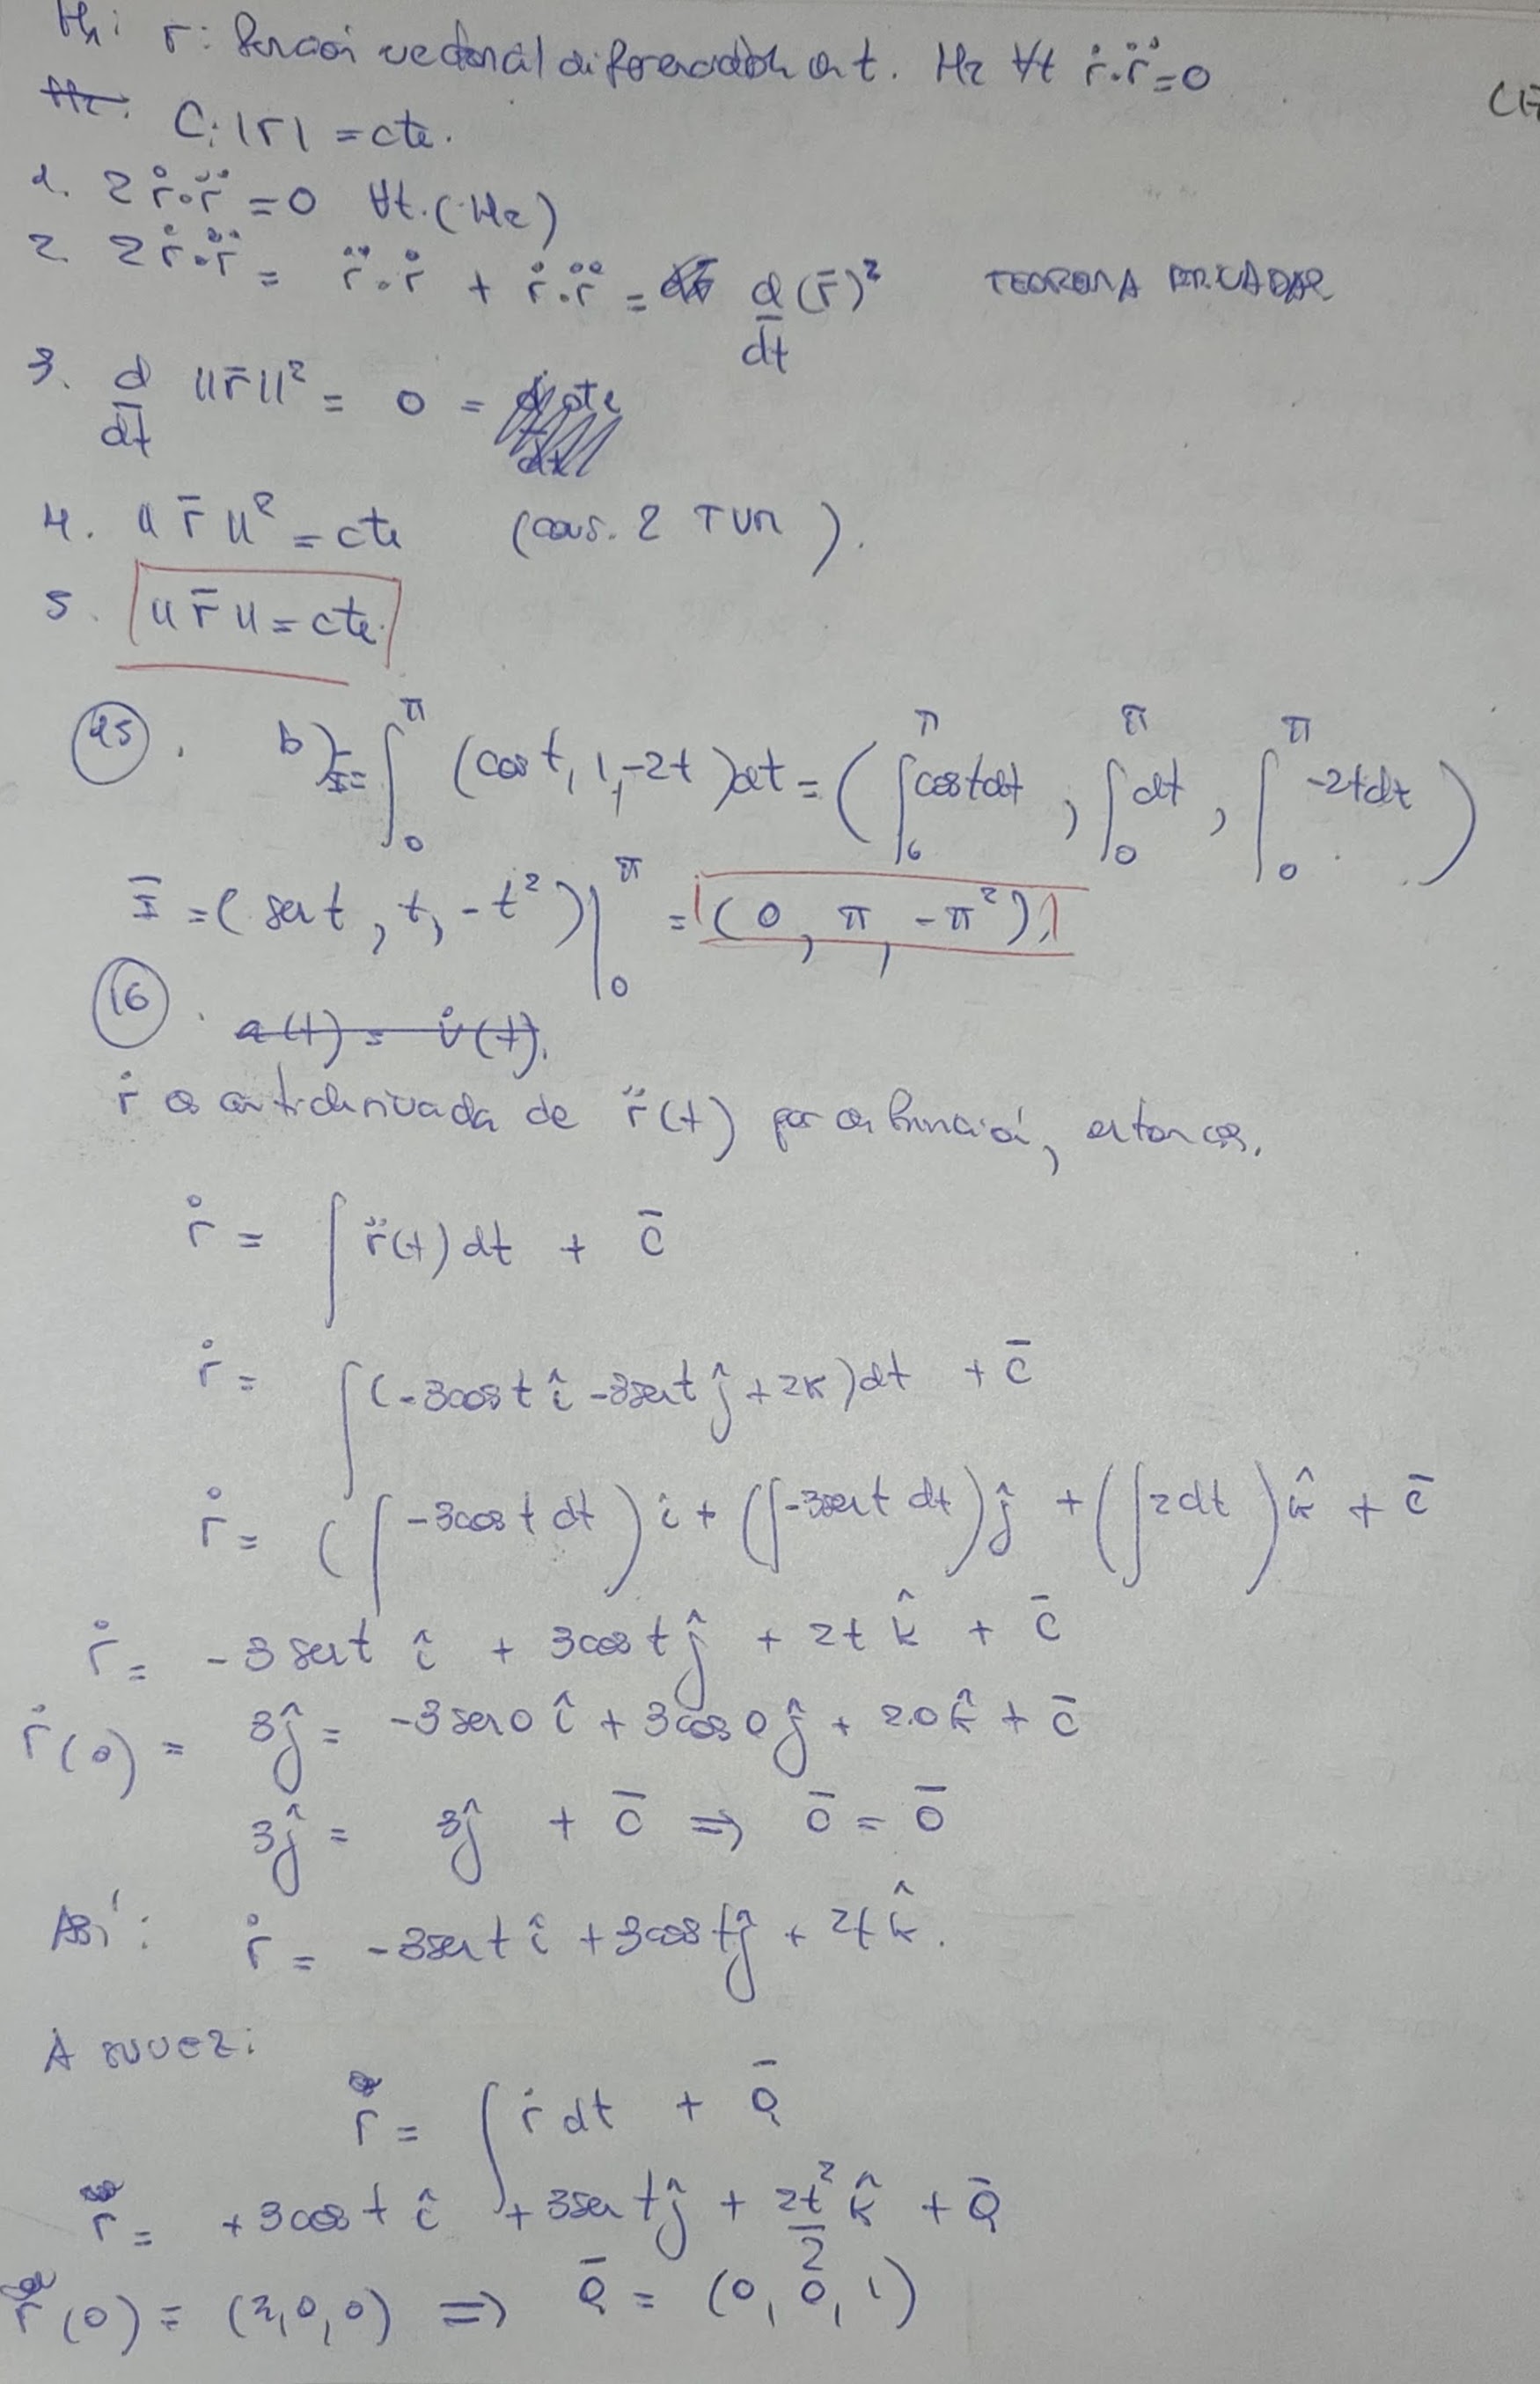 H1: r: función vectorial diferenciable en t. H2 ∀t ṙ·r̈=0
C: |r| = cte.
1. 2ṙ·r̈ = 0 ∀t. (H2)
2. 2ṙ·r̈ = r̈·ṙ + ṙ·r̈ = d/dt (r̄)² TEOREMA DERIVADAR
3. d/dt ||r̄||² = 0 =
4. ||r̄||² = cte (cons. 2 TVM).
5. ||r̄|| = cte.
b) I = ∫₀^π (cos t, 1, -2t)dt = (∫₀^π cos t dt, ∫₀^π dt, ∫₀^π -2t dt)
Ī = (sen t, t, -t²)|₀^π = (0, π, -π²)
16. a(t) = v̇(t).
ṙ es antiderivada de r̈(t) por definición, entonces,
ṙ = ∫ r̈(t)dt + c̄
ṙ = ∫(-3cos t î - 3sen t ĵ + 2k)dt + c̄
ṙ = (∫-3cos t dt) i + (∫-3sen t dt) ĵ + (∫2dt) k̂ + c̄
ṙ = -3 sen t î + 3cos t ĵ + 2t k̂ + c̄
ṙ(0) = 3ĵ = -3 sen 0 î + 3cos 0 ĵ + 2.0 k̂ + c̄
3ĵ = 3ĵ + c̄ ⇒ c̄ = 0̄
Así: ṙ = -3sen t î + 3cos t ĵ + 2t k̂.
A su vez:
r = ∫ ṙ dt + Q̄
r = +3cos t î + 3sen t ĵ + 2t²/2 k̂ + Q̄
r(0) = (3,0,0) ⇒ Q̄ = (0, 0, 1)